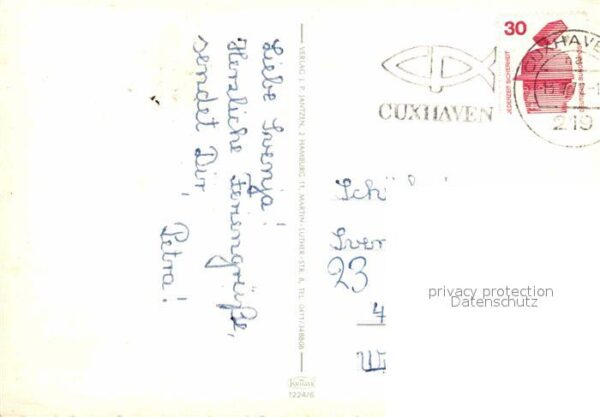 Liebe Svenja!
Herzliche Feriengrüße,
sendet Dir,
Petra!
VERLAG L. P. JANTZEN, 2 HAMBURG 11, MARTIN-LUTHER-STR. 8, TEL. 0411/348808
1224/6
30
JEDERZEIT SICHERHEIT
CUXHAVEN
CUXHAVE
219
Sch
Sven
23
4
privacy protection
Datenschutz